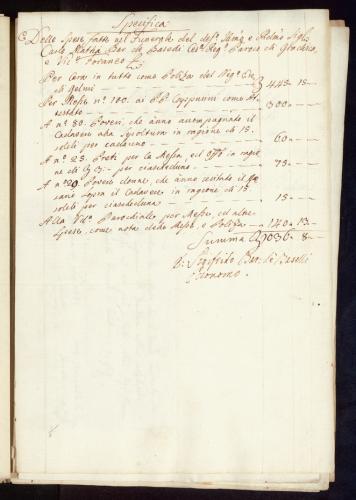 Specifica
Delle Spese fatte nel Funerale del def.º
Carlo Mattia Bar. de Baselli Ces.º Reg.º
e Vic.º Foraneo
Per Cera in tutto come Polizza del Neg.te
di Gelmi 443 — 15 —
Per Messe n.º 100. ai PP. Cappuccini come
300 — —
A n.º 80. Poveri, che ànno accompagnato il
Cadavere alla Sepoltura in ragione di 15
soldi per cadauno 60 — —
A n.º 25. Preti per la Messa, ed Off.º in ragio
ne di 3: per ciascheduno 75 — —
A n.º 20. Povere donne, che anno
il Cadavere in ragione di 15
soldi per ciascheduna 15 — —
Alla Ven.º Parochiale per Messe, ed altre
Spese, come nota delle Messe, e Polizza 140 — 13 —
Summa 1036 — 8 —
Sigifrido Bar. de Baselli
Economo